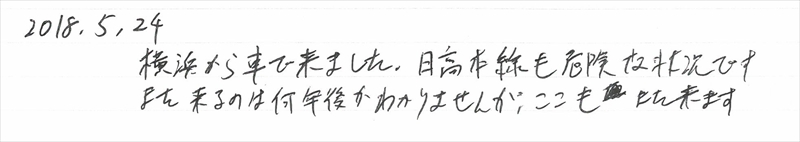 2018.5.24
横浜から車で来ました。日高本線も危険な状況です
また来るのは何年後かわかりませんが、ここも また来ます